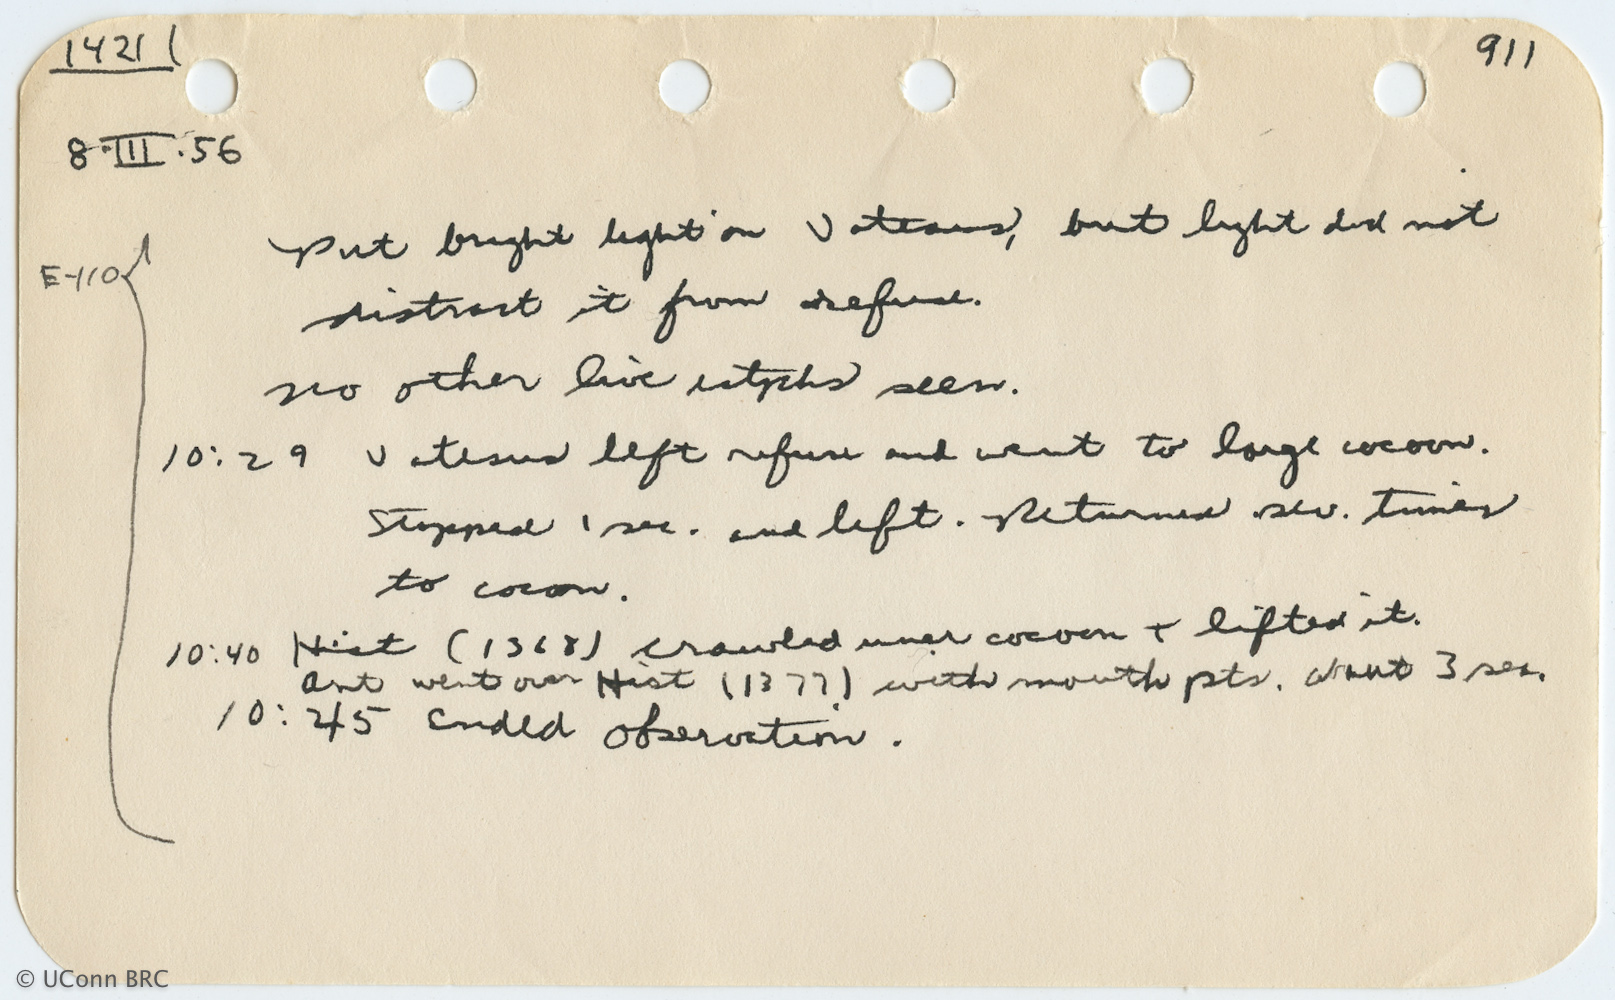 1421 (
911
8·III·56
E-110
Put bright light on Vatesus, but light did not
distract it from refuse.
No other live staphs seen.
10:29 Vatesus left refuse and went to large cocoon.
Stopped 1 sec. and left. Returned sev. times
to cocoon.
10:40 Hist (1368) crawled under cocoon + lifted it.
Ant went over Hist (1377) with mouth pts. about 3 sec.
10:45 Ended observation.
© UConn BRC